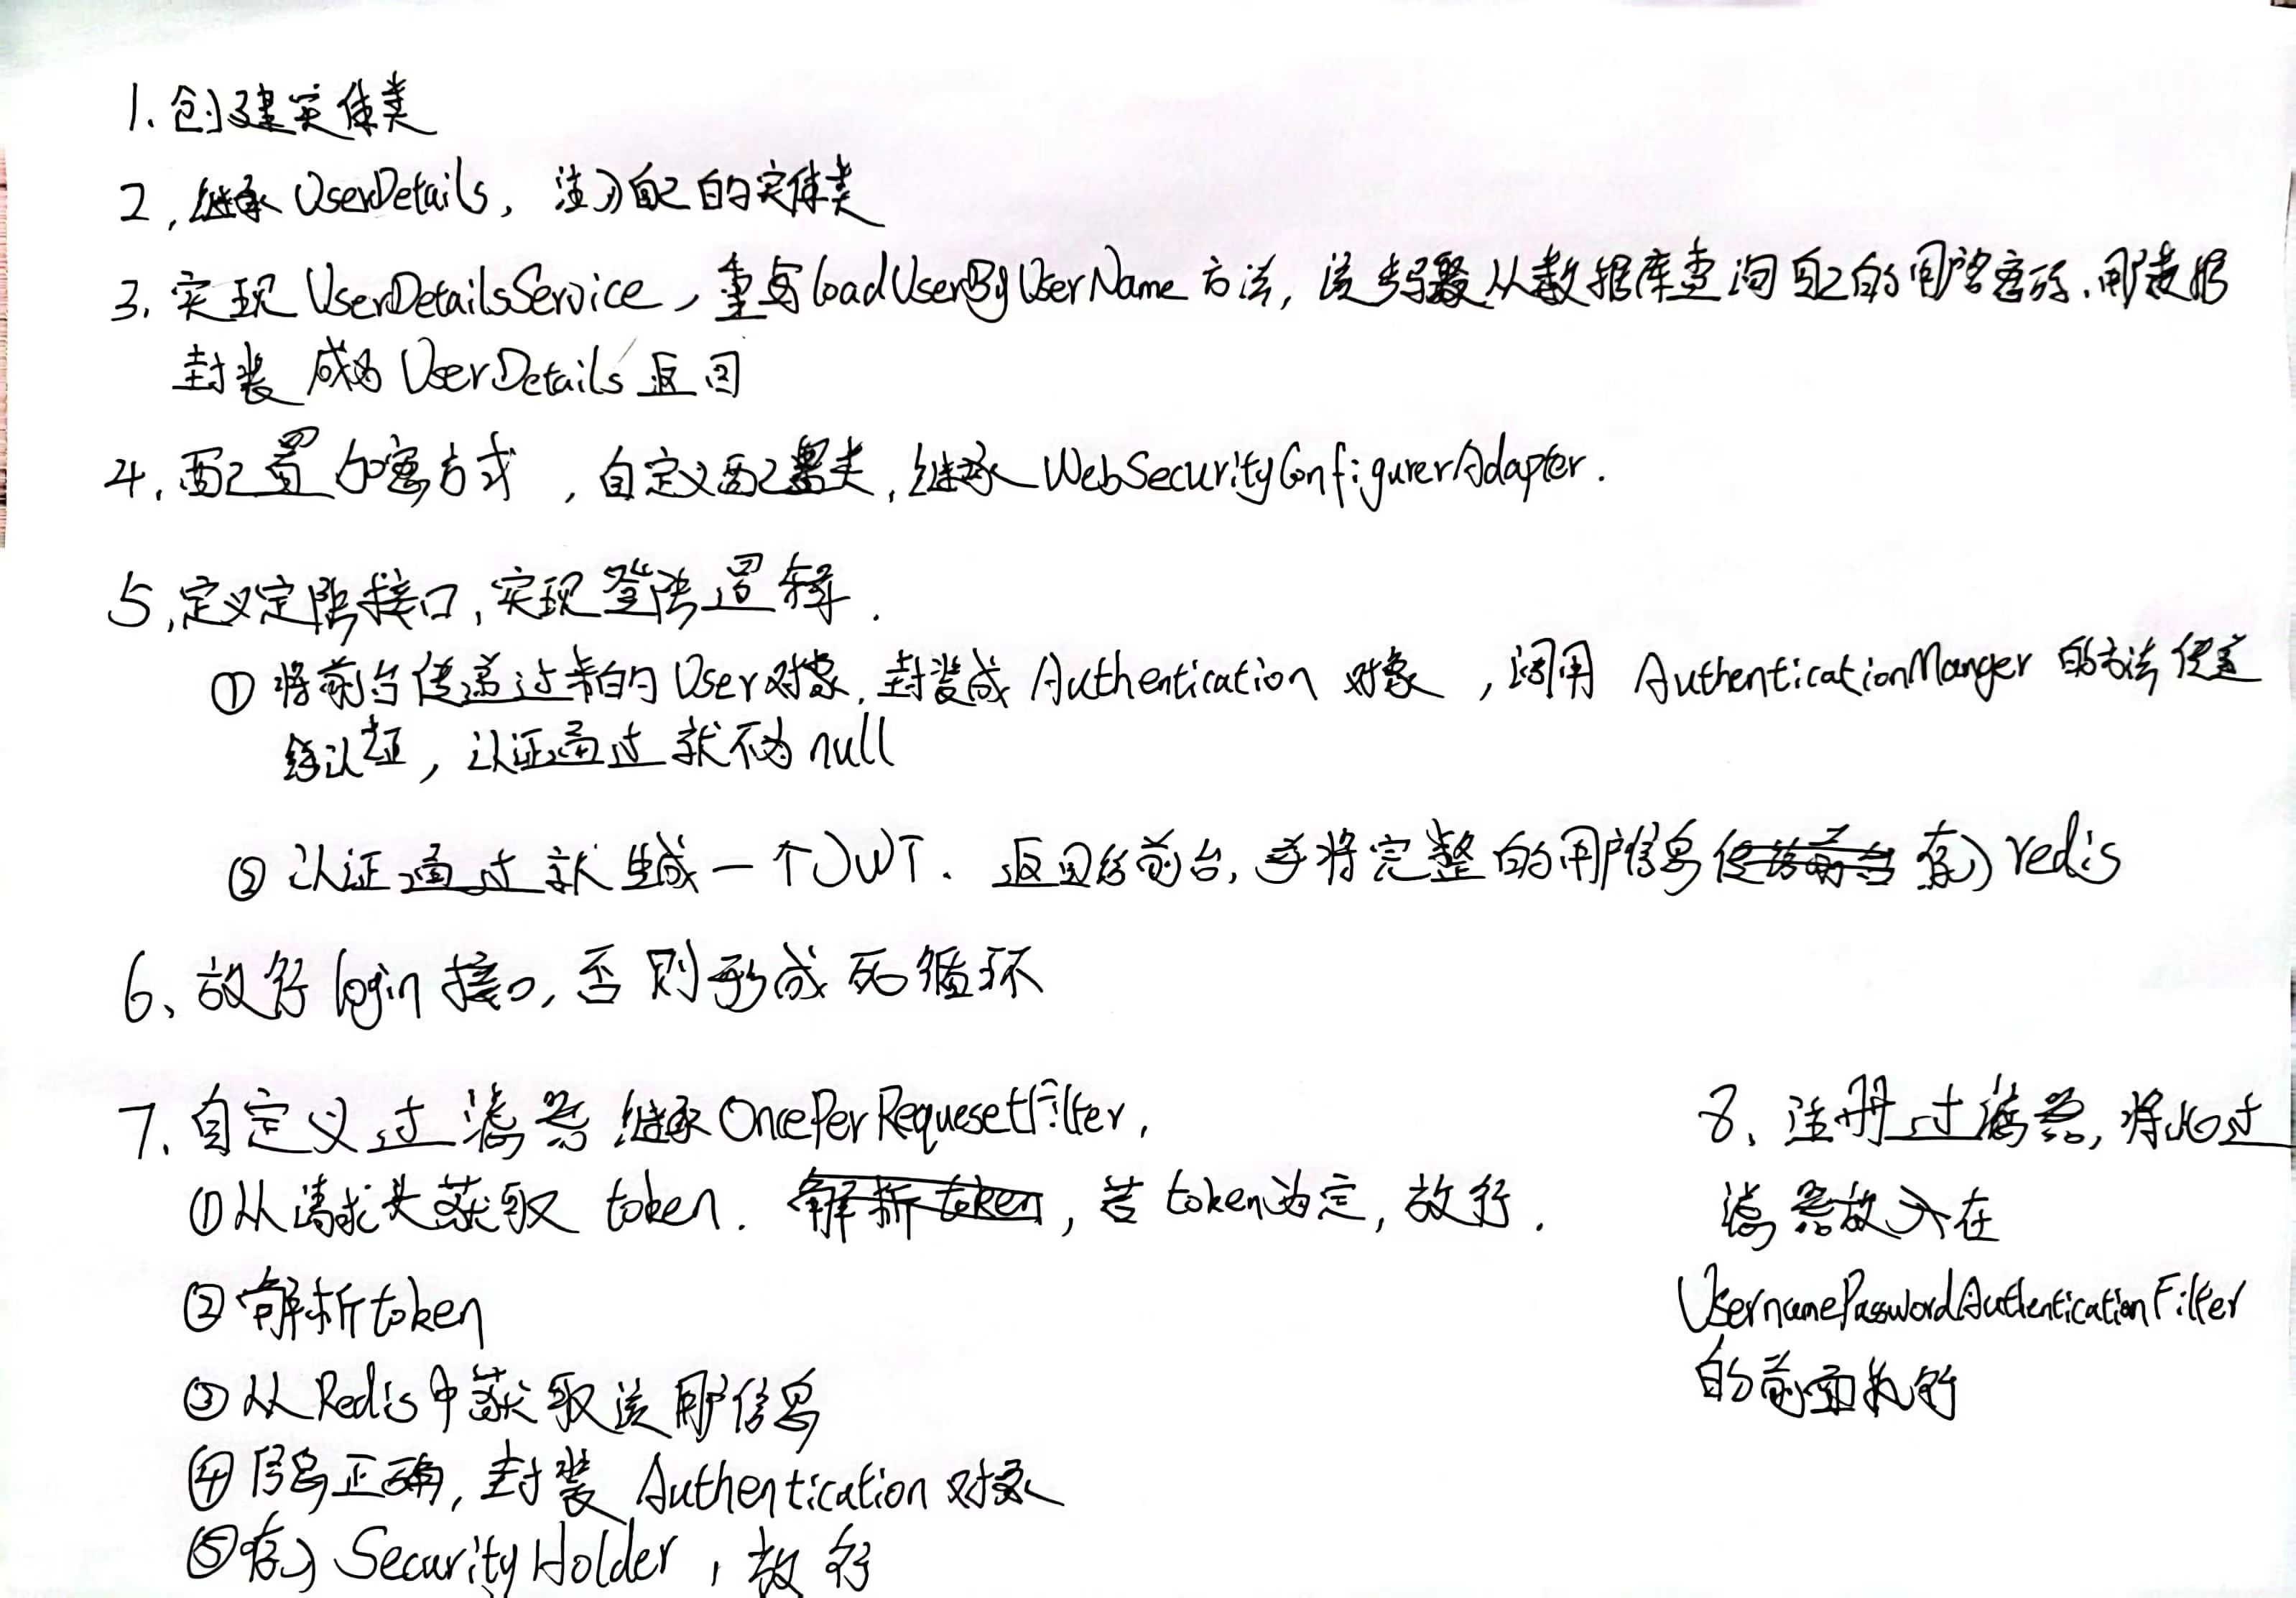 1. 创建实体类
2, 继承 UserDetails, 注入自己的实体类
3. 实现 UserDetailsService, 重写 loadUserByUserName 方法, 该步骤从数据库查询自己的用户名密码.
封装成为 UserDetails 返回
4. 配置加密方式 , 自定义配置类, 继承 WebSecurityConfigurerAdapter.
5, 定义接口, 实现登陆逻辑.
① 将前台传递过来的 User对象, 封装成 Authentication 对象 , 调用 AuthenticationManger 的方法
认证, 认证通过就不为 null
② 认证通过就生成一个JWT. 返回给前台, 并将完整的用户信息 存入 redis
6、放行 login 接口, 否则形成死循环
7. 自定义过滤器 继承 OncePerRequesetFilter,
① 从请求头获取 token. 解析 token, 若 token为空, 放行.
② 解析token
③ 从Redis中获取该用户信息
④ 信息正确, 封装 Authentication 对象
⑤ 存入 SecurityHolder , 放行
8、注册过滤器, 将此过
滤器放入在
UsernamePasswordAuthenticationFilter
的前面执行